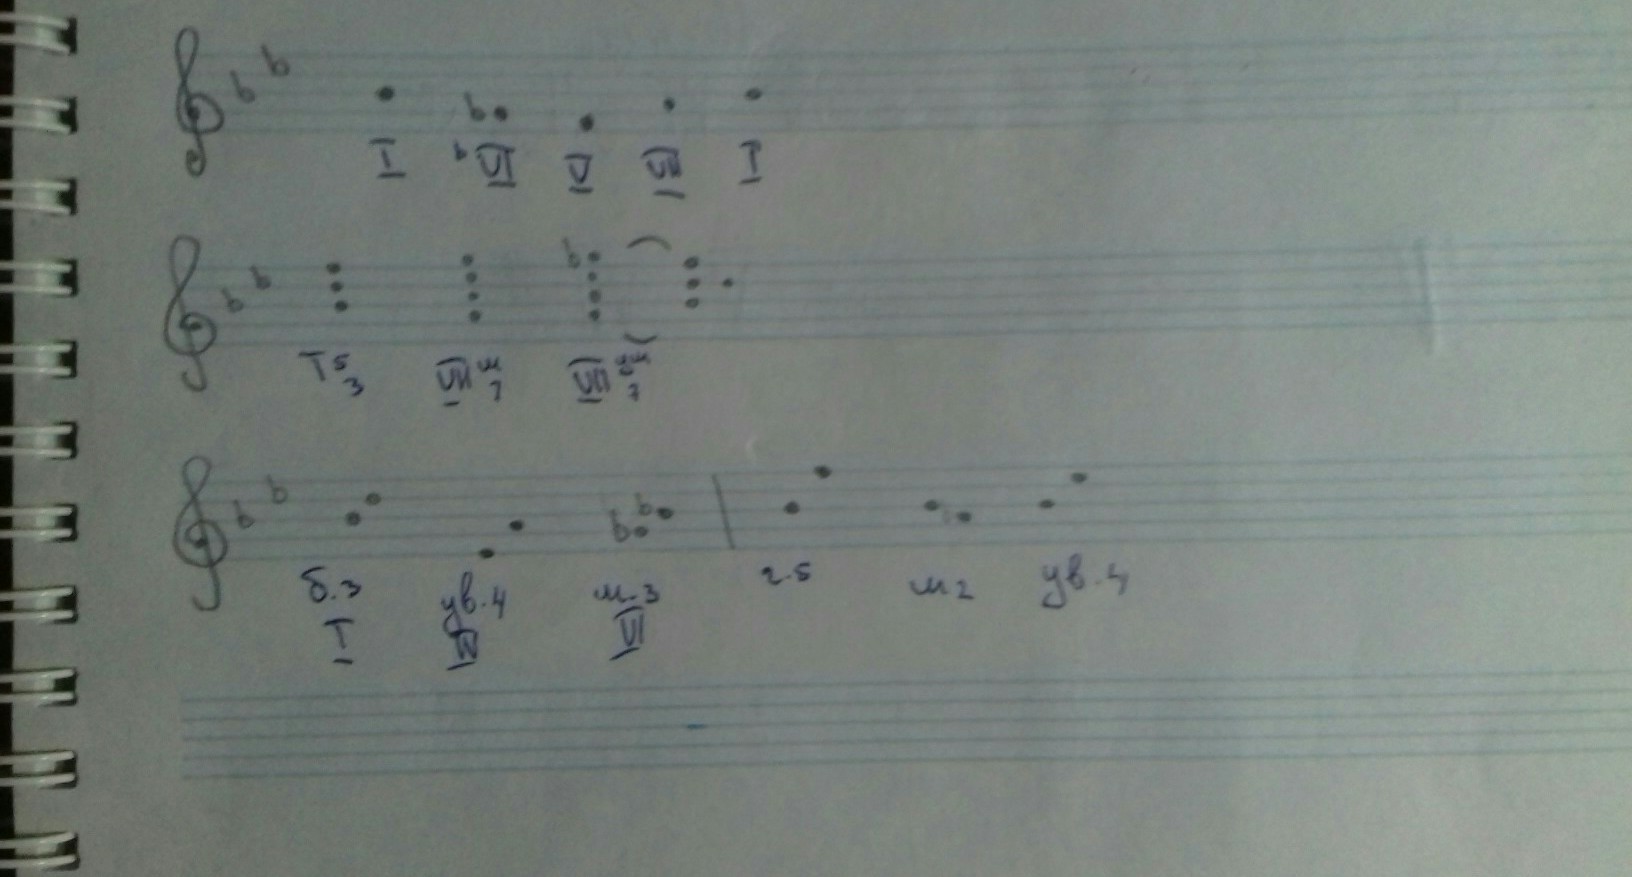 I ♭VI V VII I
T5/3 VIIм7 VIIум7
б.3 ув.4 м.3 ч.5 м2 ув.4
I IV VI